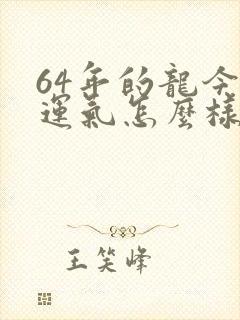 64年的龍今
運氣怎麼樣
王笑峰